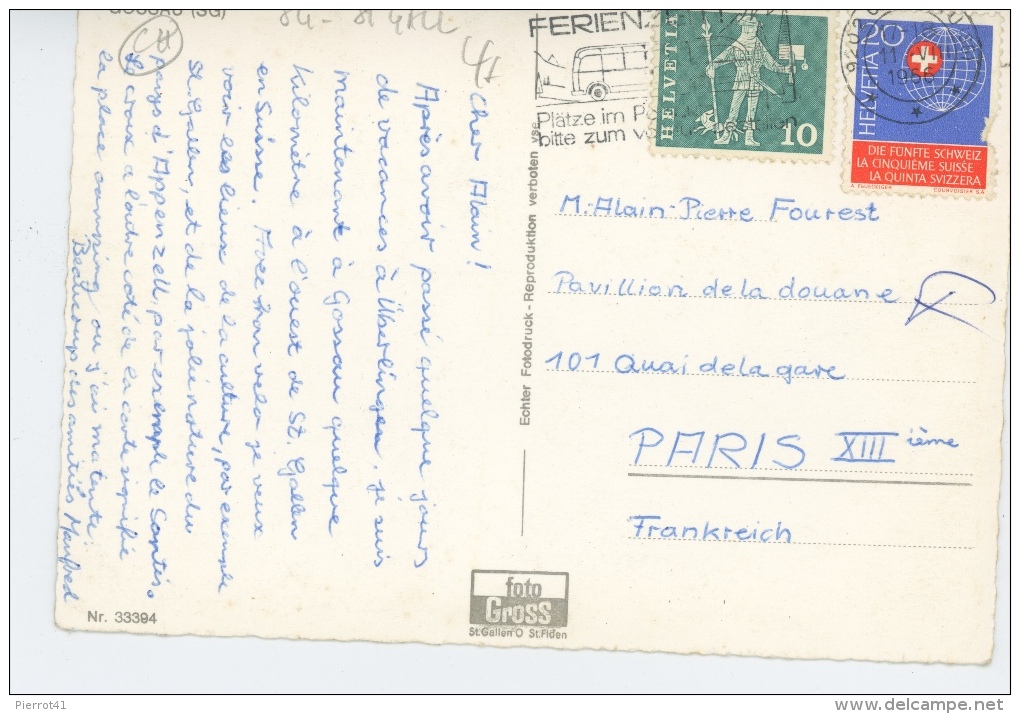 GOSSAU (SG)
Cher Alain!
Après avoir passé quelque jours
de vacances à Überlingen. je suis
maintenant à Gossau quelque
kilomètre à l'ouest de St. Gallen
en Suisse. Avec mon velo je veux
voir les lieux de la culture, par exemple
St. Gallen, et de la jolie nature du
pays d'Appenzell, par exemple le Säntis.
La croix à l'adre coté de la carte signifie
la place camping ou j'ai ma tente.
Beaucoup des amitiés Manfred
Nr. 33394
Echter Fotodruck - Reproduktion verboten vse.
foto
Gross
St.Gallen O St.Fiden
FERIENZ
Plätze im Po
bitte zum v
HELVETIA
10
9202
11. VIII
1966
HELVETIA
20
DIE FÜNFTE SCHWEIZ
LA CINQUIÈME SUISSE
LA QUINTA SVIZZERA
COURVOISIER S.A.
M. Alain-Pierre Fourest
Pavillion de la douane
101 Quai de la gare
PARIS XIII ième
Frankreich
Pierrot41
www.delcampe.net